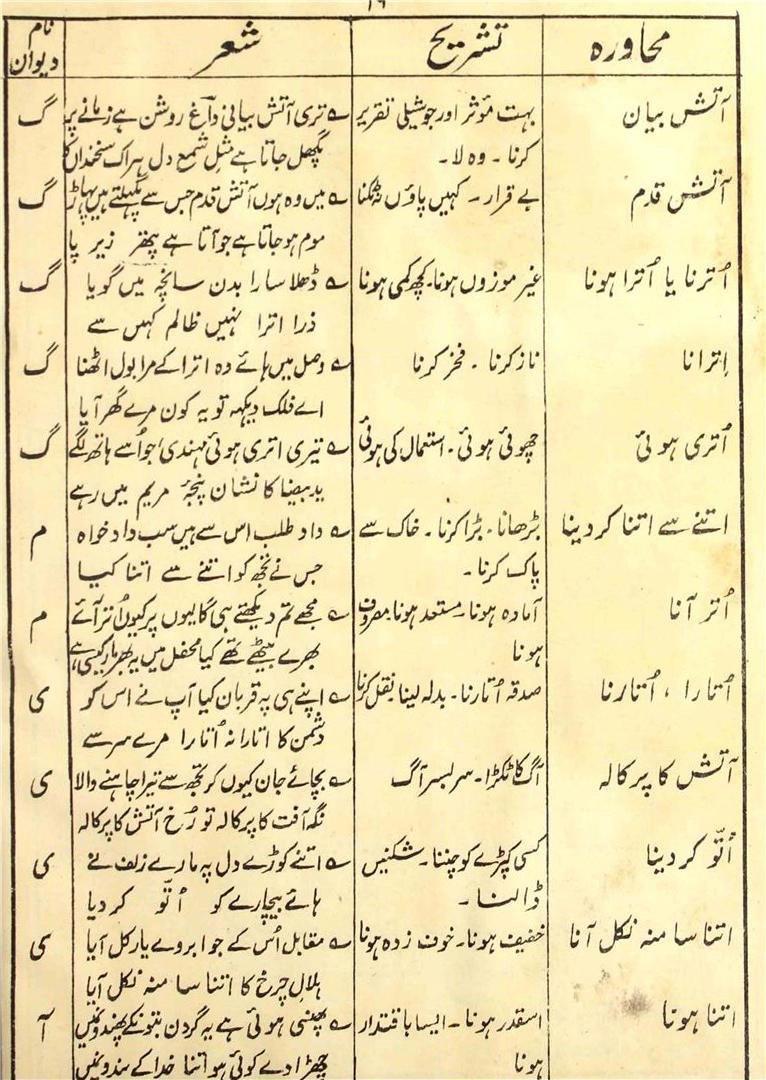 ۱۶
محاورہ تشریح شعر نام دیوان
آتش بیان بہت مؤثر اور جوشیلی تقریر ؎ تری آتش بیانی داغؔ روشن ہے زمانے پر گ
کرنا ۔ وہ لا ۔ پگھل جاتا ہے مثلِ شمع دل ہر اک سخنداں کا
آتش قدم بے قرار ۔ کہیں پاؤں نہ ٹکنا ؎ میں وہ ہوں آتش قدم جس سے پگھلتے ہیں پہاڑ گ
موم ہو جاتا ہے جو آتا ہے پتھر زیر پا
اُترنا یا اُترا ہونا غیر موزوں ہونا ۔ کچھ کمی ہونا ؎ ڈھلا سارا بدن سانچہ میں گویا گ
ذرا اترا نہیں ظالم کہیں سے
اِترانا ناز کرنا ۔ فخر کرنا ؎ وصل میں ہائے وہ اترا کے مرا بول اٹھنا گ
اے فلک دیکہہ تو یہ کون مرے گھر آیا
اُتری ہوئی چھوئی ہوئی ۔ استعمال کی ہوئی ؎ تیری اتری ہوئی مہندی جو اُسے ہاتھ لگے گ
ید بیضا کا نشان پنجۂ مریم میں رہے
اتنے سے اتنا کر دینا بڑھانا ۔ بڑا کرنا ۔ خاک سے ؎ داد طلب اس سے ہیں سب داد خواہ م
پاک کرنا ۔ جس نے تجھ کو اتنے سے اتنا کیا
اُتر آنا آمادہ ہونا ۔ مستعد ہونا ۔ مصروف ؎ مجھے تم دیکھتے ہی گالیوں پر کیوں اُتر آئے م
ہونا بھرے بیٹھے تھے کیا محفل میں یہ بھرمار کیسی ہے
اُتارا ، اُتارنا صدقہ اُتارنا ۔ بدلہ لینا نقل کرنا ؎ اپنے ہی پہ قربان کیا آپ نے اس کو ی
دشمن کا اتارا نہ اُتارا مرے سر سے
آتش کا پرکالہ آگ کا ٹکڑا ۔ سربسر آگ ؎ بچائے جان کیوں کر تجھ سے تیرا چاہنے والا ی
نگہ آفت کا پرکالہ تو رُخ آتش کا پرکالہ
اُتّو کر دینا کسی کپڑے کو چننا ۔ شکنیں ؎ اتنے کوڑے دل پہ مارے زلف نے ی
ڈالنا ۔ ہائے بیچارے کو اُتّو کر دیا
اتنا سا منہ نکل آنا خفیف ہونا ۔ خوف زدہ ہونا ؎ مقابل اُس کے جو ابروے یار کل آیا ی
ہلالِ چرخ کا اتنا سا منہ نکل آیا
اتنا ہونا اسقدر ہونا ۔ ایسا با قتدار ؎ پھنسی ہوئی ہے یہ گردن بتونکے پھندونمیں آ
ہونا چھڑا دے کوئی ہو اتنا خدا کے بندونمیں